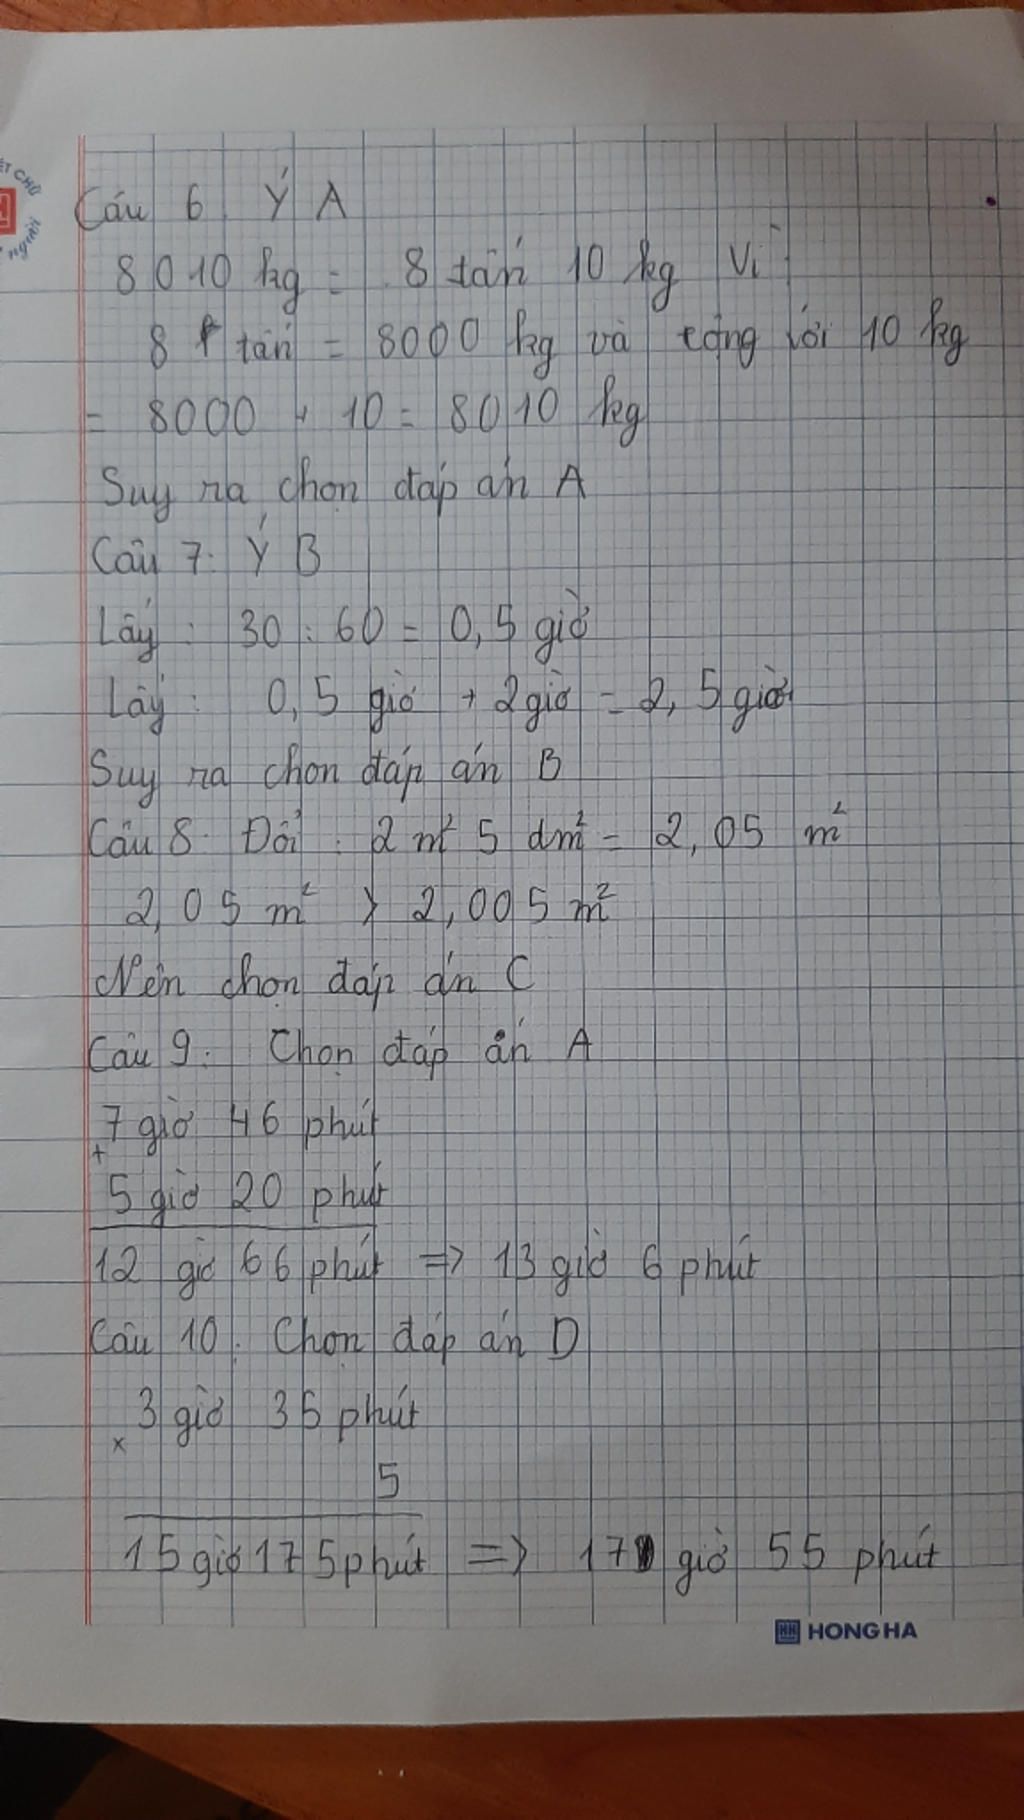 ẾT CHỮ
người
Câu 6 Ý A
8010 kg = 8 tấn 10 kg Vì
8 tấn = 8000 kg và cộng với 10 kg
= 8000 + 10 = 8010 kg
Suy ra chọn đáp án A
Câu 7: Ý B
Lấy : 30 : 60 = 0,5 giờ
Lấy : 0,5 giờ + 2 giờ = 2,5 giờ
Suy ra chọn đáp án B
Câu 8: Đổi : 2 m² 5 dm² = 2,05 m²
2,05 m² > 2,005 m²
Nên chọn đáp án C
Câu 9: Chọn đáp án A
7 giờ 46 phút
+
5 giờ 20 phút
12 giờ 66 phút => 13 giờ 6 phút
Câu 10: Chọn đáp án D
3 giờ 35 phút
x
5
15 giờ 175 phút => 17 giờ 55 phút
HH HONG HA